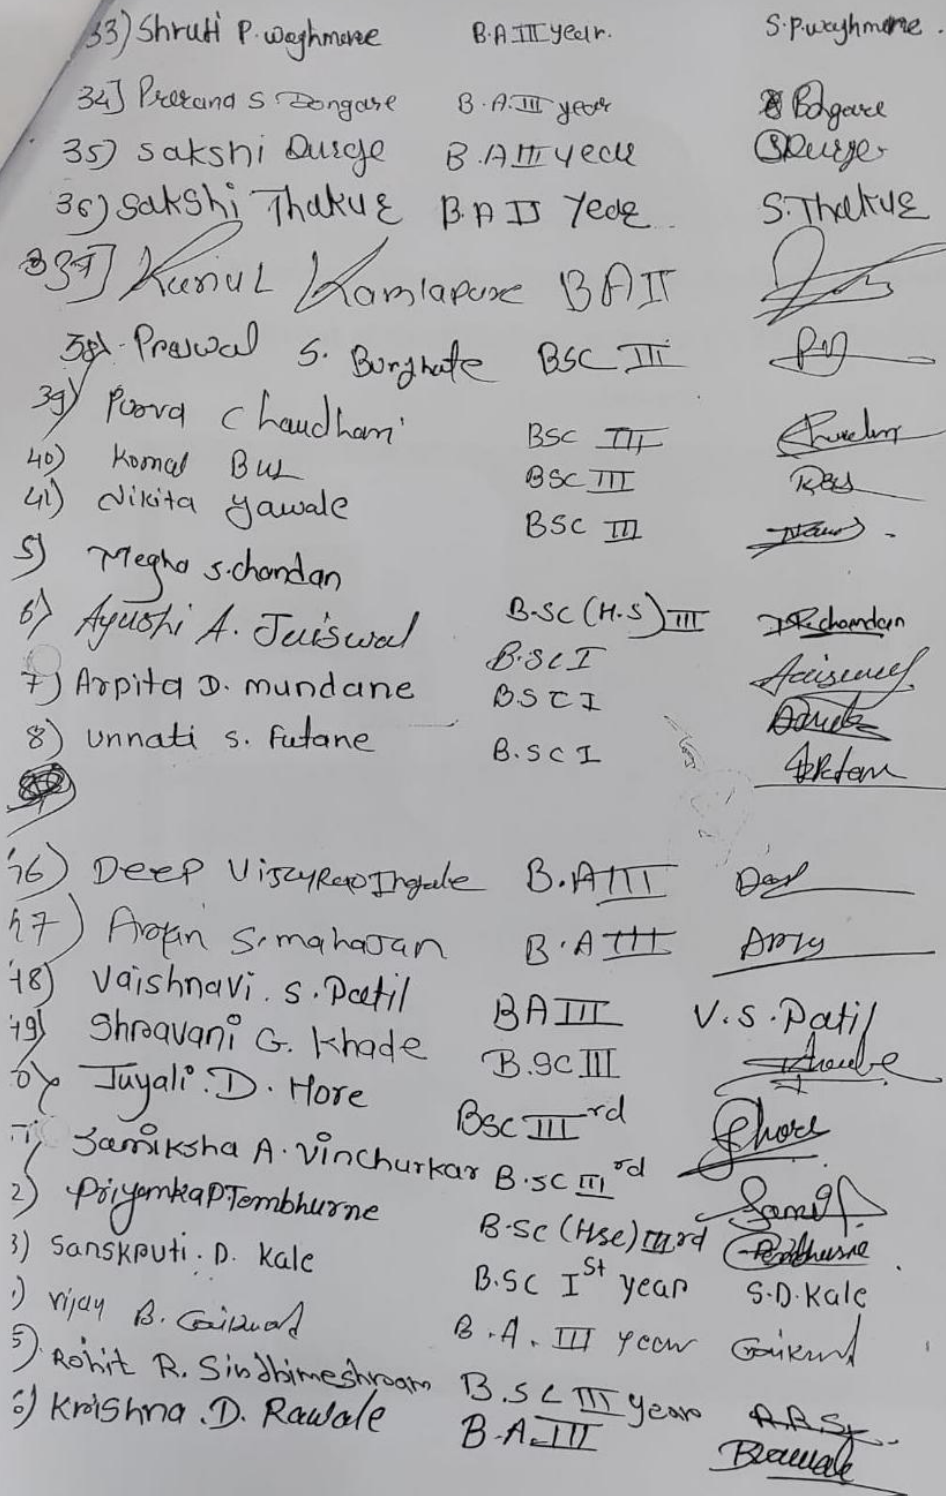 33) Shruti P. waghmare B.A III year. S.P. waghmare.
34] Prerana S Dongare B.A. III year Dongare
35) Sakshi Durge B.A III year SDurge
36) Sakshi Thakur B.A II Year S.Thakur
37] Kunul Kamlapure BA II
38) Prajwal S. Burghate BSC III
39) Poorva Chaudhari BSC III
40) Komal Bul BSC III
41) Nikita Yawale BSC III
5) Megha S.chandan B.SC (H.S) III chandan
6) Ayushi A. Jaiswal B.SC I Jaiswal
7) Arpita D. mundane B.SC I
8) Unnati S. Futane B.SC I
46) Deep Vijayrao Ingale B.A III Deep
47) Aryan S. mahajan B.A III Aryan
48) Vaishnavi. S. Patil BA III V.S.Patil
49) Shravani G. Khade B.SC III
0) Juyali. D. Hore BSC IIIrd Jhore
1) Samiksha A. Vinchurkar B.SC IIIrd
2) Priyamka P.Tembhurne B.SC (HSc) IIIrd
3) Sanskruti. D. Kale B.SC Ist year S.D.Kale
) Vijay B. Gaikwad B.A. III year Gaikwad
5) Rohit R. Sindhimeshraam B.SC III year R.R.S
6) Krishna .D. Rawale B.A III Rawale